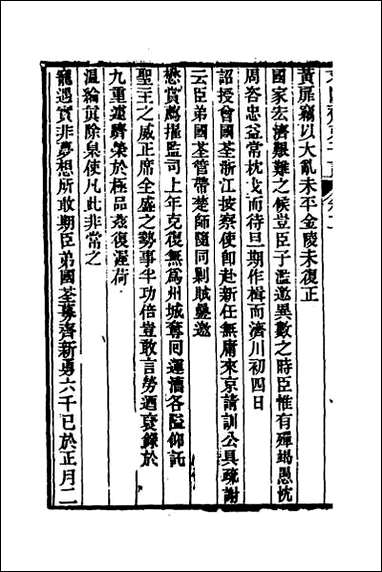 黃扉竊以大亂未平金陵未復正
國家宏濟艱難之候豈臣子濫邀異數之時臣惟有殫竭愚忱
周咨忠益常枕戈而待旦期作楫而濟川初四日
詔授曾國荃浙江按察使卽赴新任無庸來京請訓公具疏謝
云臣弟國荃管帶楚師隨同剿賊疊邀
懋賞薦擢監司上年克復無爲州城奪囘運漕各隘仰託
聖主之威正席全盛之勢事半功倍豈敢言勞迺褒錄於
九重遽躋榮於極品茲復渥荷
溫綸眞除臬使凡此非常之
寵遇實非夢想所敢期臣弟國荃募齊新勇六千已於正月二